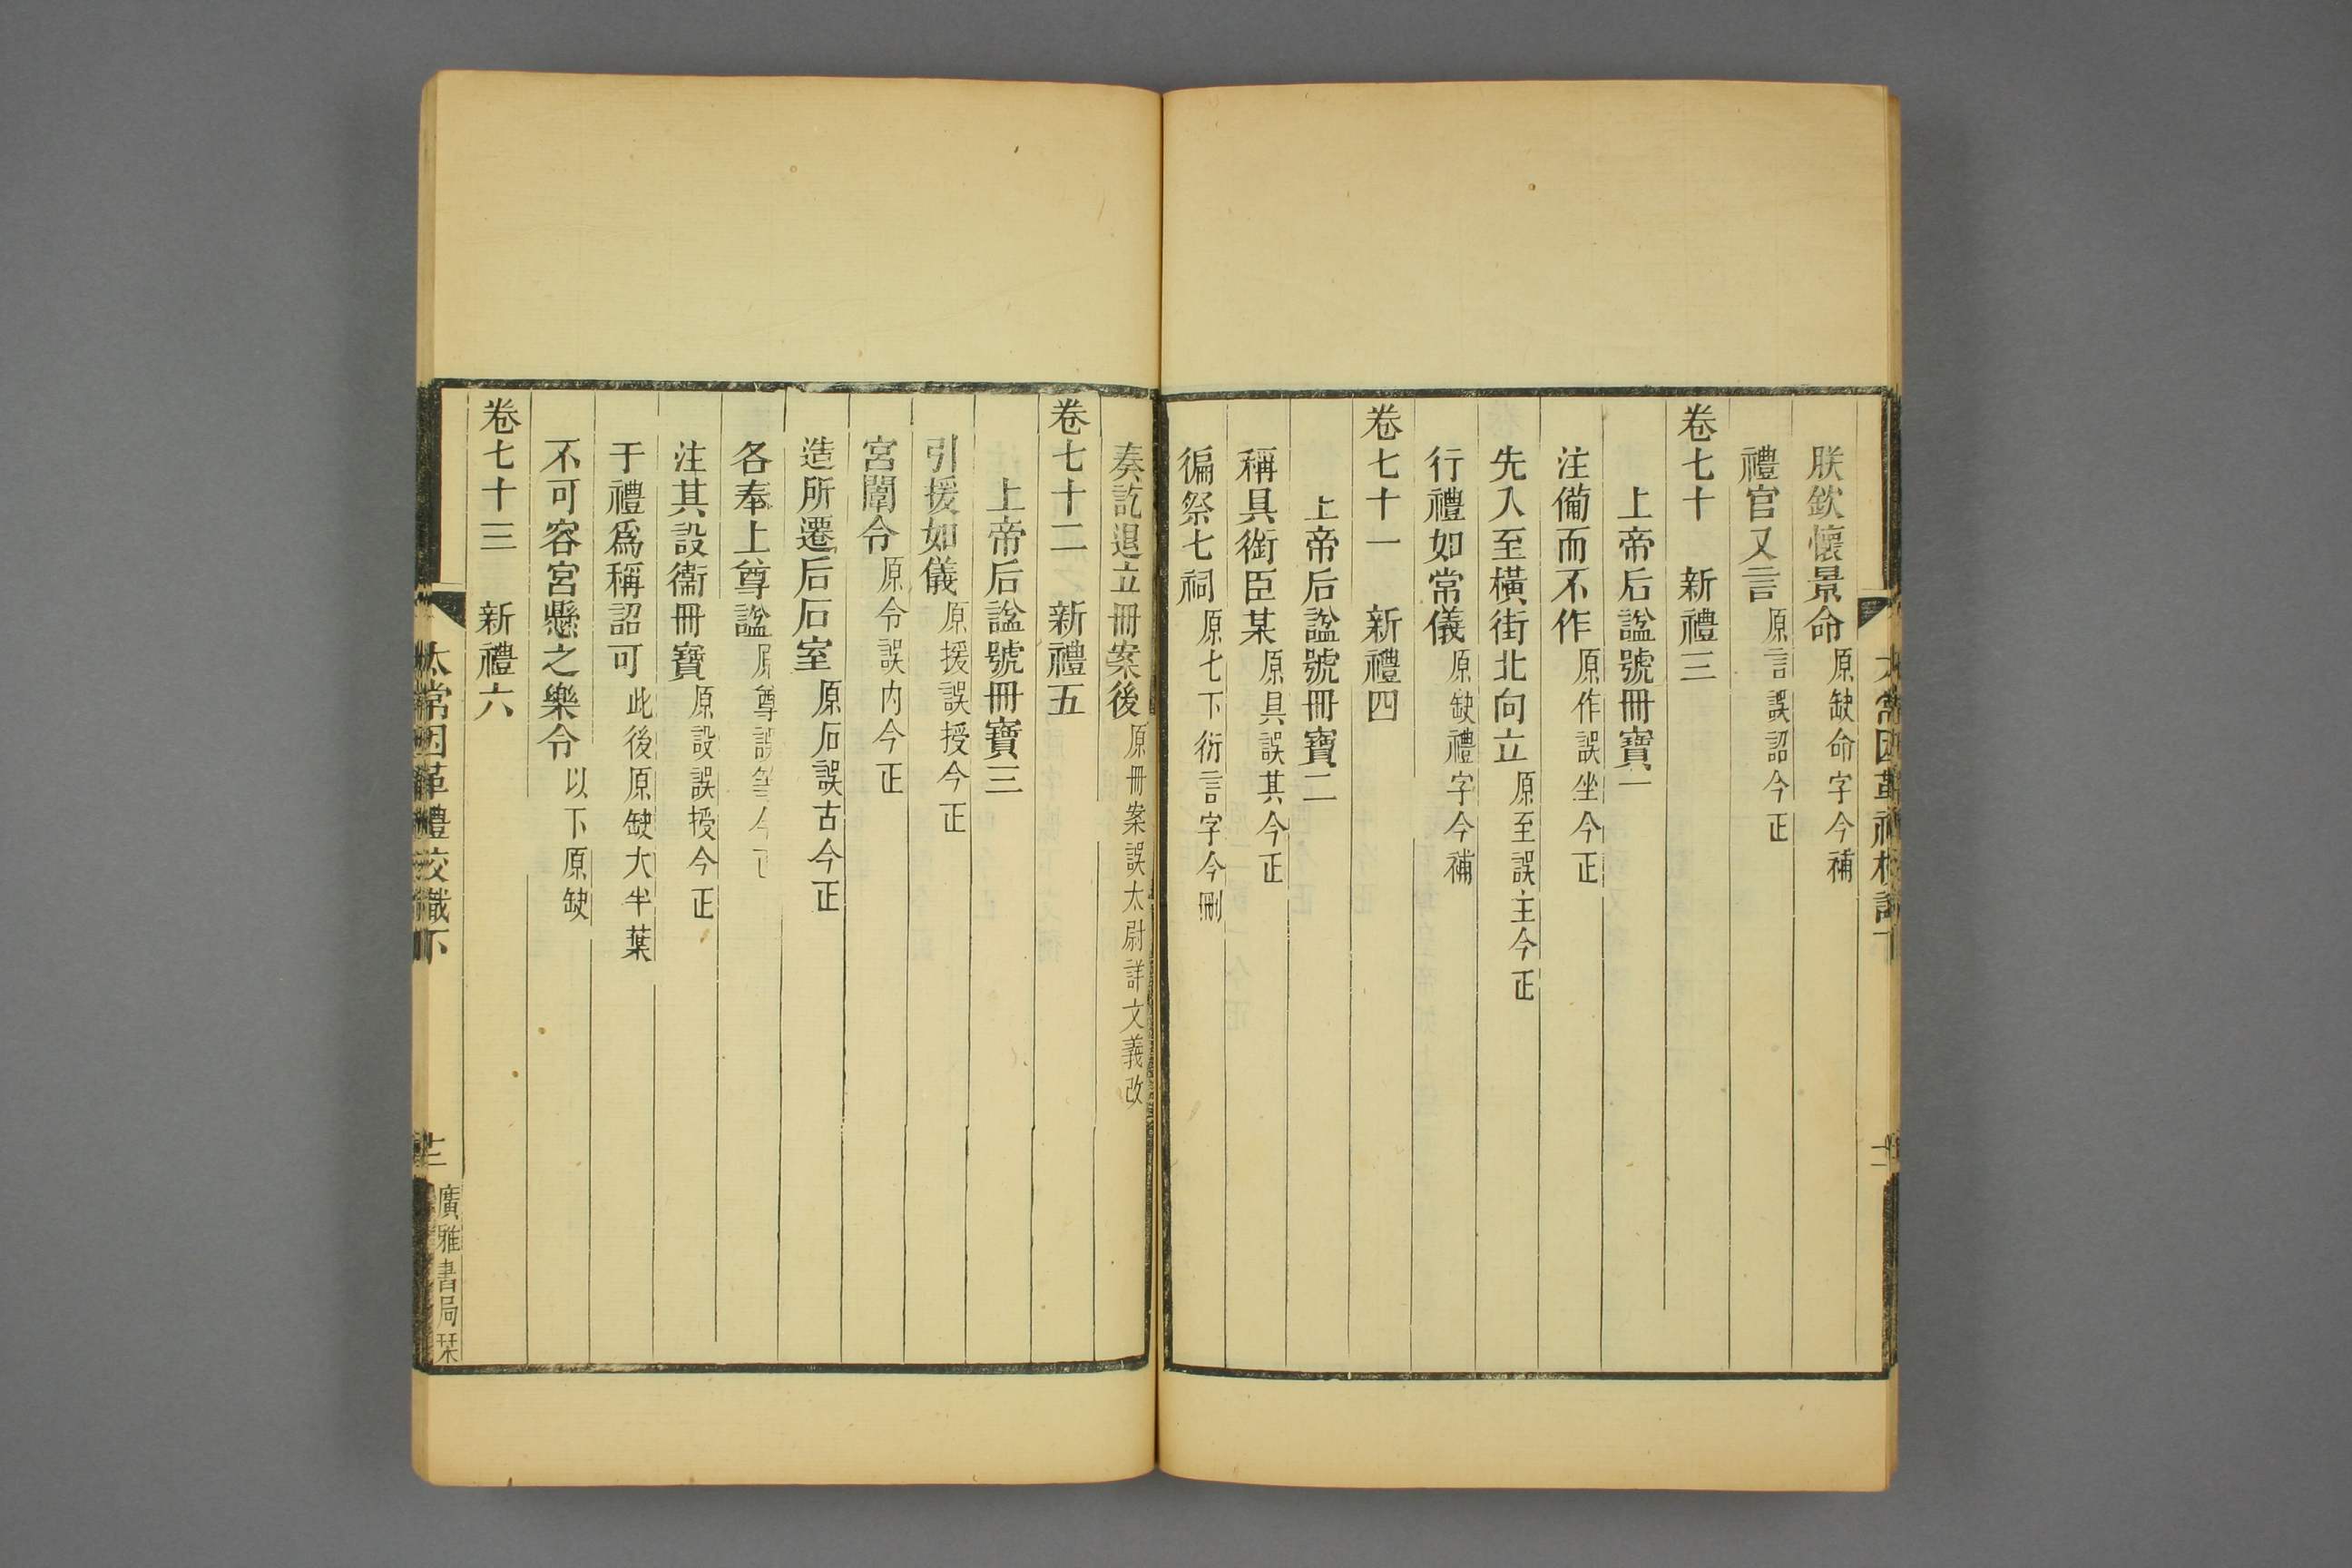 朕欽懷景命原缺命字今補
禮官又言原言誤詔今正
卷七十 新禮三
上帝后謚號冊寶一
注備而不作原作誤坐今正
先入至橫街北向立原至誤主今正
行禮如常儀原缺禮字今補
卷七十一 新禮四
上帝后謚號冊寶二
稱具銜臣某原具誤其今正
徧祭七祠原七下衍言字今刪
奏訖退立冊案後原冊案誤太尉詳文義改
卷七十二 新禮五
上帝后謚號冊寶三
引援如儀原援誤授今正
宮闈令原令誤内今正
造所遷后石室原石誤古今正
各奉上尊謚原尊誤今正
注其設衞冊寶原設誤授今正
于禮爲稱詔可此後原缺大半葉
不可容宮懸之樂令以下原缺
卷七十三 新禮六
太常因革禮校識下
廣雅書局栞